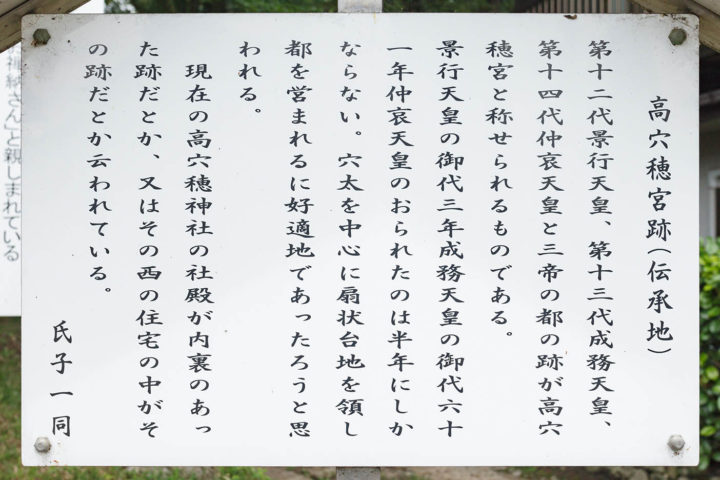 高穴穂宮跡（伝承地）
第十二代景行天皇、第十三代成務天皇、
第十四代仲哀天皇と三帝の都の跡が高穴
穂宮と称せられるものである。
景行天皇の御代三年成務天皇の御代六十
一年仲哀天皇のおられたのは半年にしか
ならない。穴太を中心に扇状台地を領し
都を営まれるに好適地であったろうと思
われる。
現在の高穴穂神社の社殿が内裏のあっ
た跡だとか、又はその西の住宅の中がそ
の跡だとか云われている。
氏子一同
さん」と親しまれている